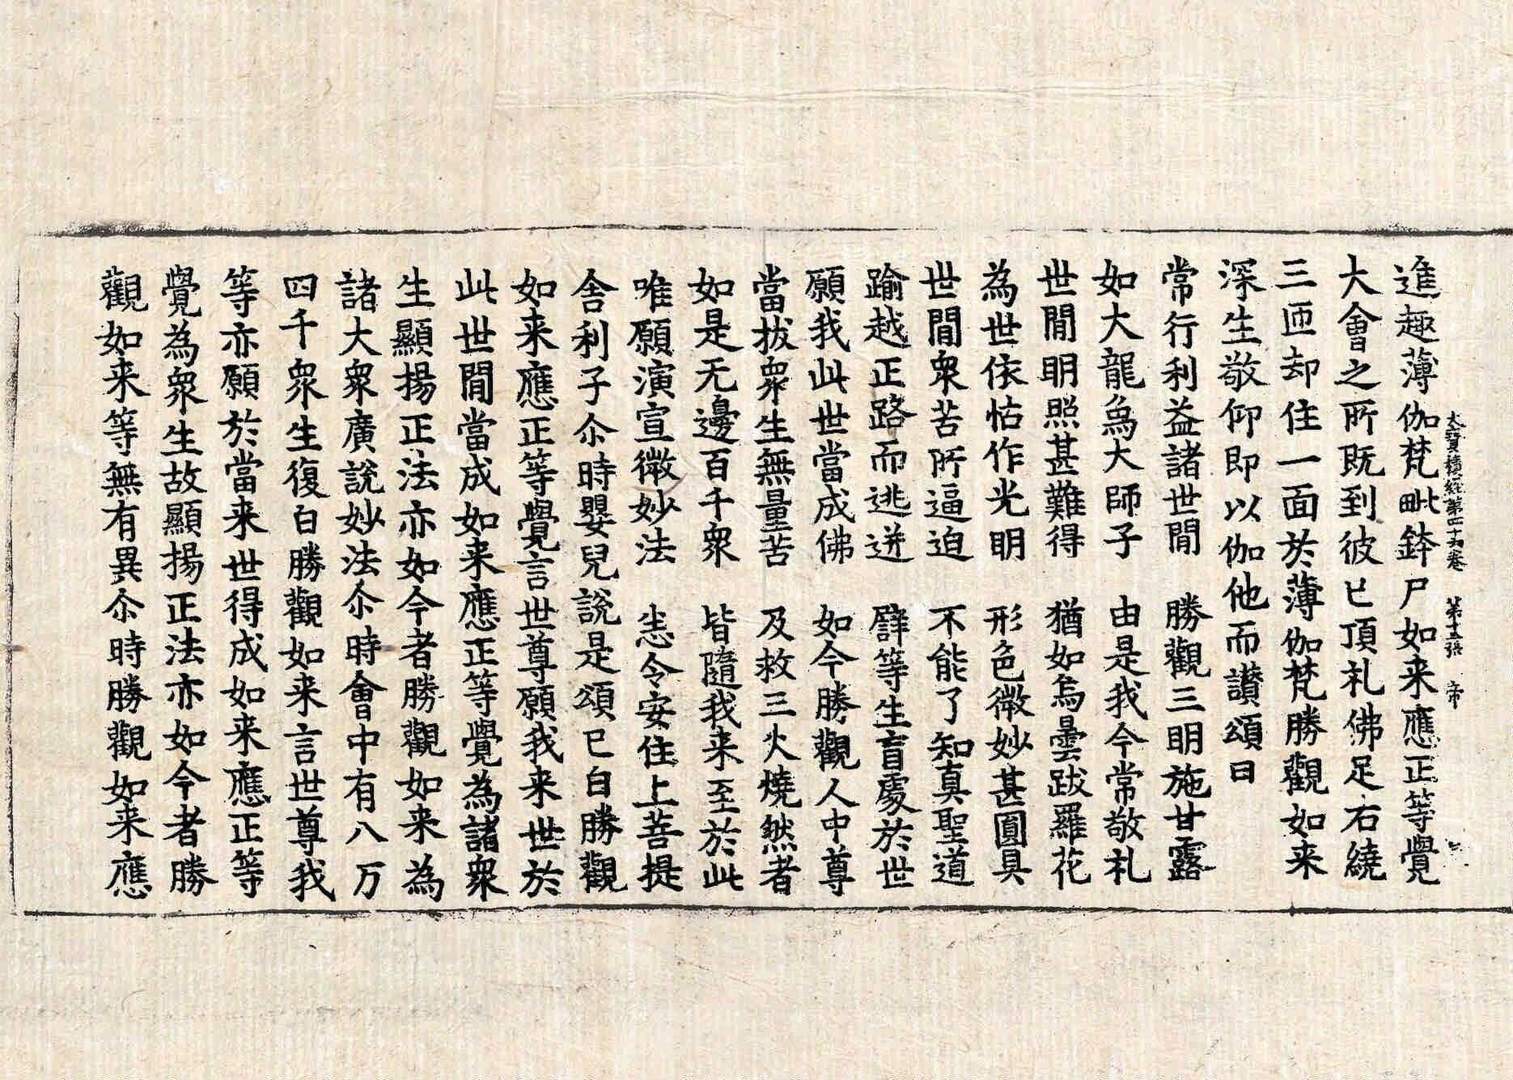 大寶積經第四十六卷 第十五張 帝
進趣薄伽梵毗鉢尸如来應正等覺
大會之所既到彼已頂礼佛足右繞
三匝却住一面於薄伽梵勝觀如来
深生敬仰即以伽他而讃頌曰
常行利益諸世間 勝觀三明施甘露
如大龍象大師子 由是我今常敬礼
世間明照甚難得 猶如烏曇跋羅花
為世依怙作光明 形色微妙甚圓具
世間衆苦所逼迫 不能了知真聖道
踰越正路而逃迸 譬等生盲處於世
願我此世當成佛 如今勝觀人中尊
當拔衆生無量苦 及救三火燒然者
如是无邊百千衆 皆隨我来至於此
唯願演宣微妙法 悉令安住上菩提
舍利子尒時嬰兒說是頌已白勝觀
如来應正等覺言世尊願我来世於
此世間當成如来應正等覺為諸衆
生顯揚正法亦如今者勝觀如来為
諸大衆廣說妙法尒時會中有八万
四千衆生復白勝觀如来言世尊我
等亦願於當来世得成如来應正等
覺為衆生故顯揚正法亦如今者勝
觀如来等無有異尒時勝觀如来應